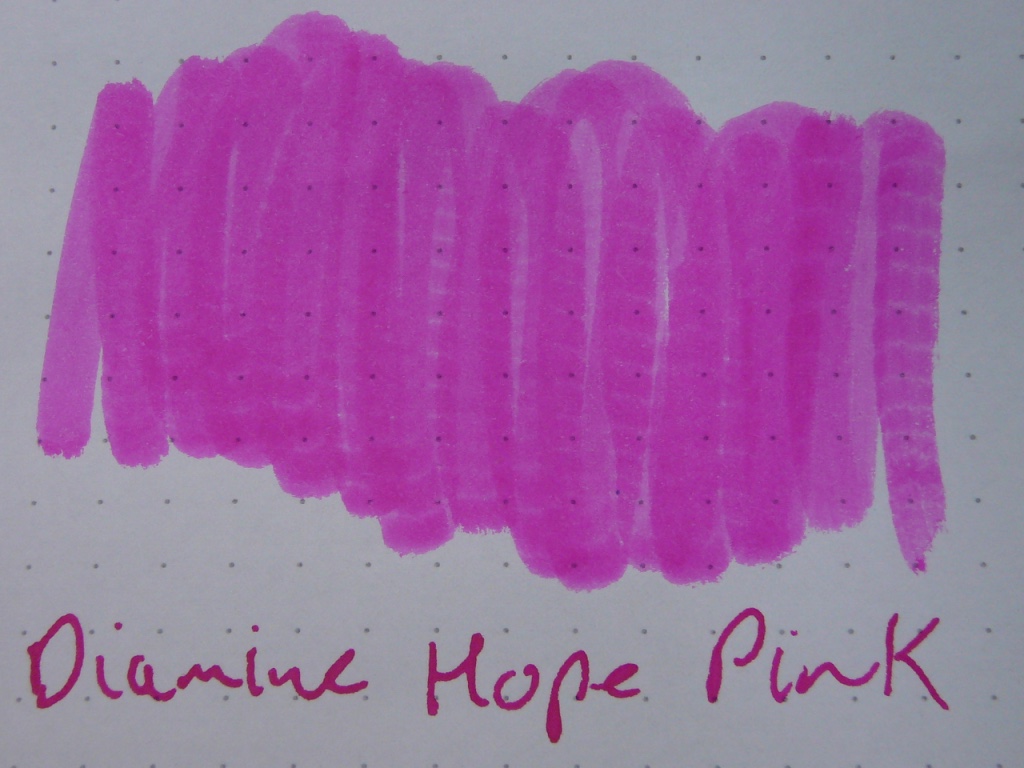 Diamine Hope Pink